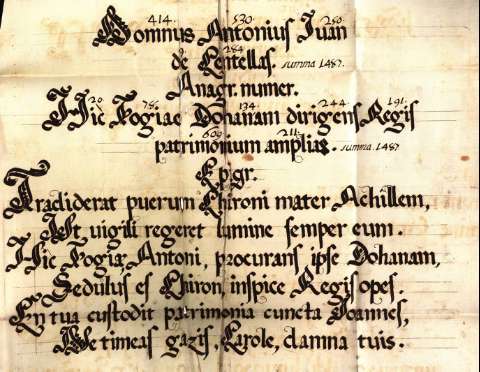 414 530 250
Domnus Antonius Iuan
9 284
de Centellas. summa 1487.
Anagr. numer.
20 78 134 244 191
Hic Fogiae Dohanam dirigens Regis
609 211
patrimonium amplias. summa 1487
Epgr.
Tradiderat puerum Chironi mater Achillem,
Ut uigili regeret lumine semper eum.
Hic Fogiæ, Antoni, procurans ipse Dohanam,
Sedulus es Chiron inspice Regis opes.
En tua custodit patrimonia cuncta Ioannes,
Ne timeas gazis, Carole, damna tuis.